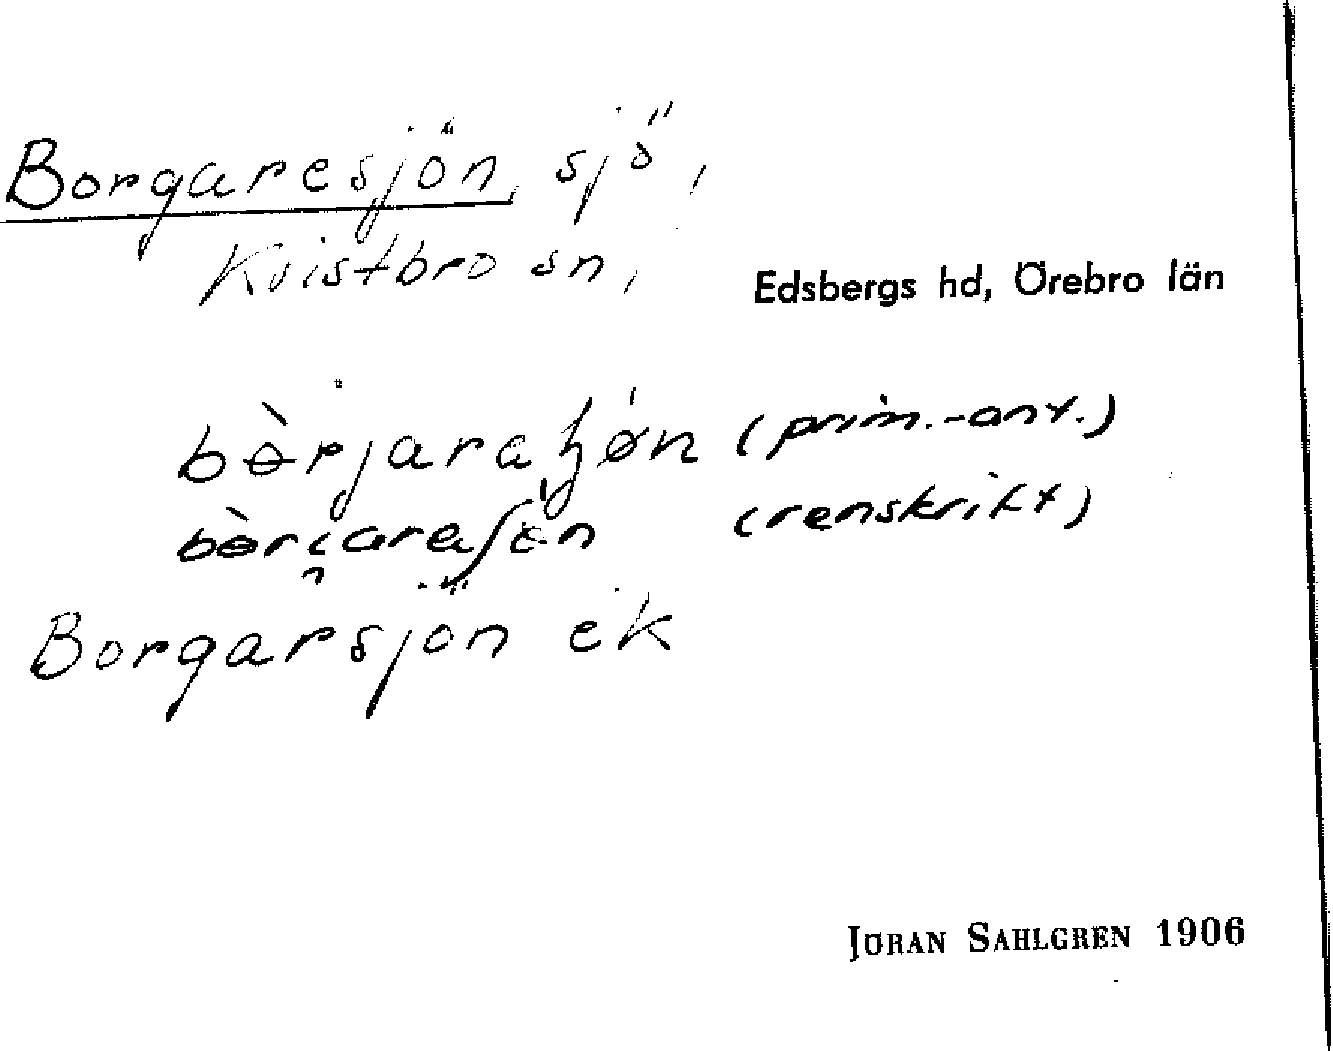 Borgaresjön, sjö,
Kvistbro sn,
Edsbergs hd, Örebro län
(prim.-ant.)
(renskrift)
Borgarsjön ek
JÖRAN SAHLGREN 1906